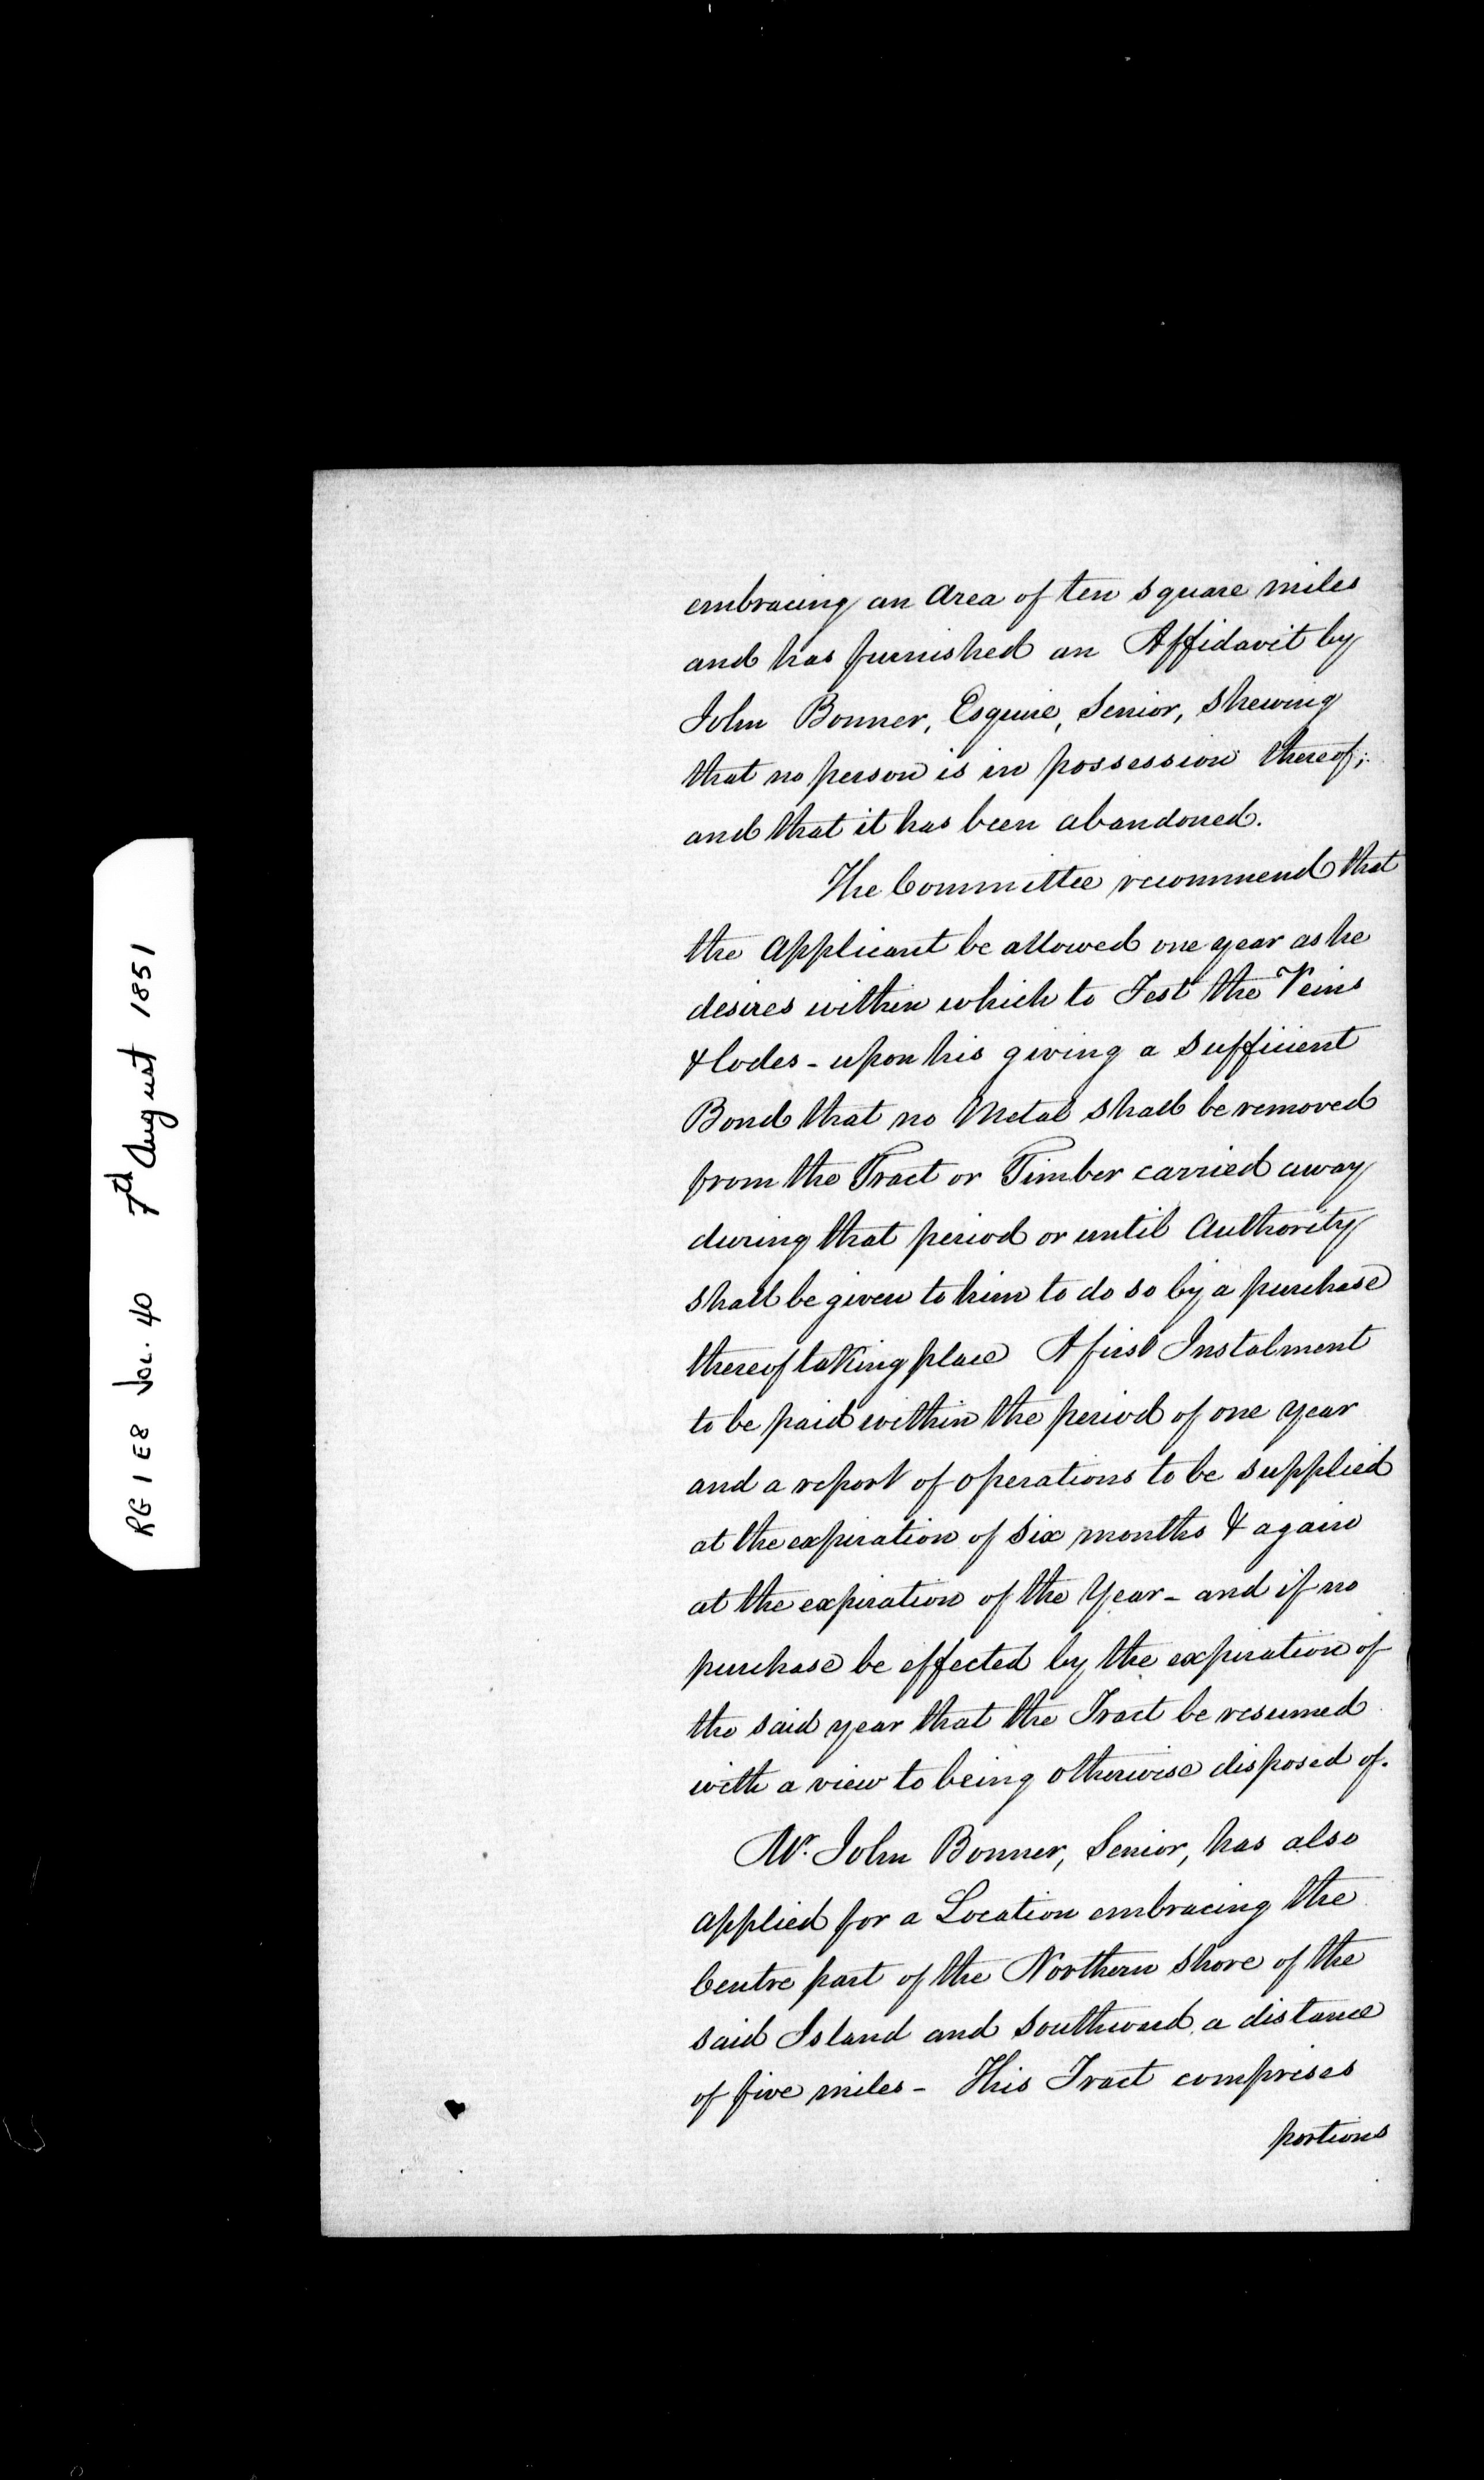 RG 1 E8 Vol. 40 7th August 1851
embracing an Area of ten square miles
and has furnished an Affidavit by
John Bonner, Esquire, Senior, shewing
that no person is in possession thereof;
and that it has been abandoned.
The Committee recommend that
the Applicant be allowed one year as he
desires within which to Test the Veins
& Lodes - upon his giving a sufficient
Bond that no Metal shall be removed
from the Tract or Timber carried away
during that period or until Authority
shall be given to him to do so by a purchase
thereof taking place A first Instalment
to be paid within the period of one year
and a report of operations to be supplied
at the expiration of six months & again
at the expiration of the Year - and if no
purchase be effected by the expiration of
the said year that the Tract be resumed
with a view to being otherwise disposed of.
Mr. John Bonner, Senior, has also
applied for a Location embracing the
Centre part of the Northern shore of the
said Island and Southward a distance
of five miles - This Tract comprises
portions